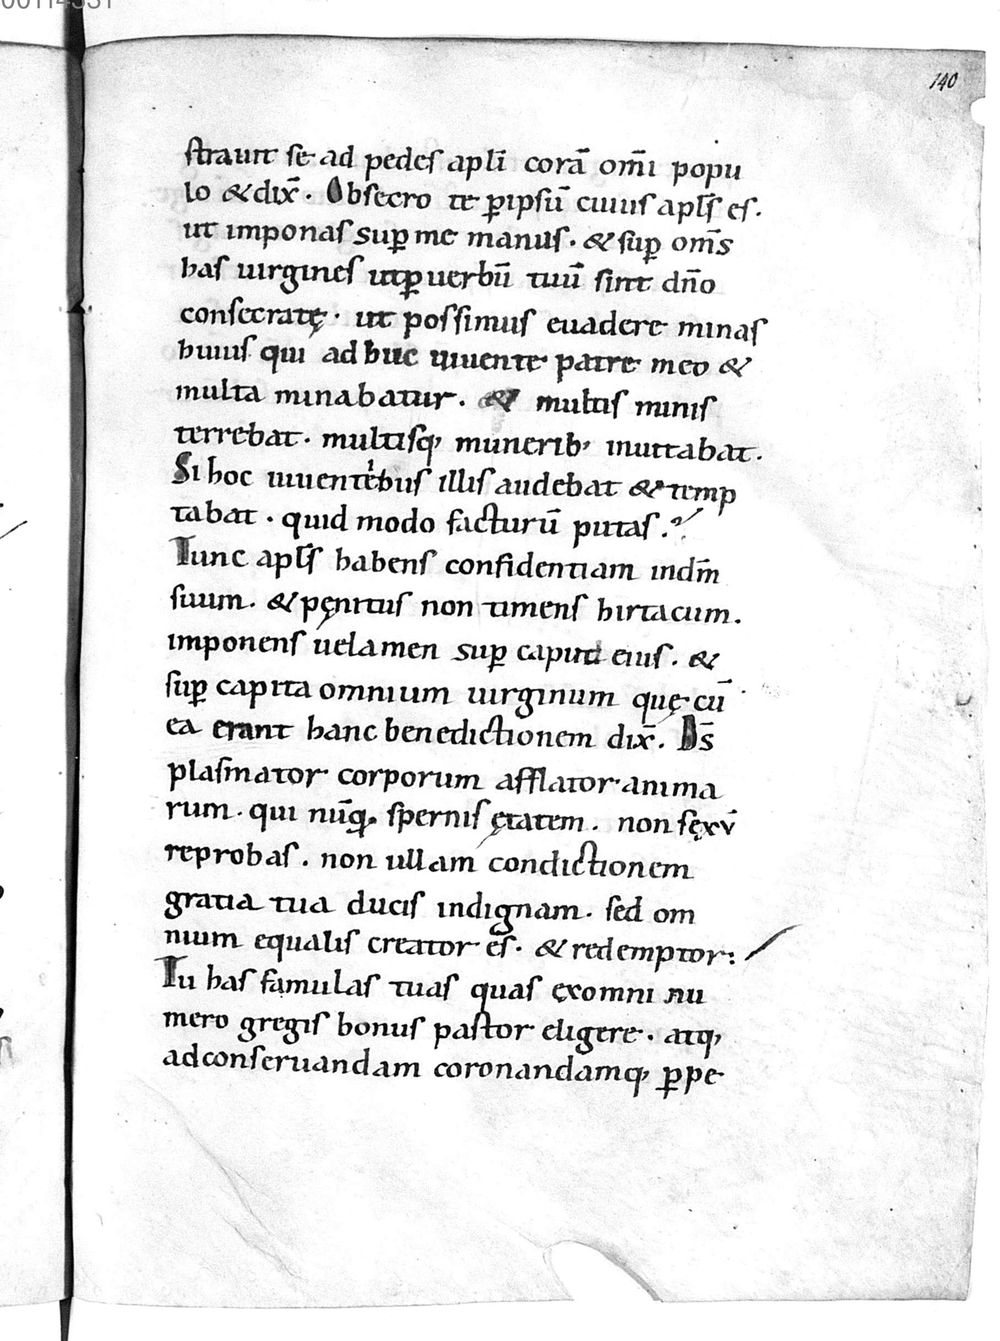 140
strauit se ad pedes apłi corā om̄i popu
lo & dix̄. Obsecro te ꝑ ipsū cuius apłs es.
ut imponas suꝑ me manus. & suꝑ om̄s
has uirgines ut ꝑ uerbū tuū sint dn̄o
consecratę. ut possimus euadere minas
huius qui adhuc uiuente patre meo &
multa minabatur. & multis minis
terrebat. multisq, munerib, inuitabat.
Si hoc uiuentibus illis audebat & temp
tabat. quid modo facturū putas.
Tunc apłs habens confidentiam in dn̄m
suum. & pęnitus non timens hirtacum.
imponens uelamen suꝑ caput eius. &
suꝑ capita omnium uirginum quę cū
ea erant hanc benedictionem dix̄. Ds̄
plasmator corporum afflator anima
rum. qui nūq̄ spernis ętatem. non sęxū
reprobas. non ullam condictionem
gratia tua ducis indignam. sed om
nium equalis creator es. & redemptor:
Tu has famulas tuas quas ęx omni nu
mero gregis bonus pastor eligere. atq,
ad conseruandam coronandamq, ꝑpe